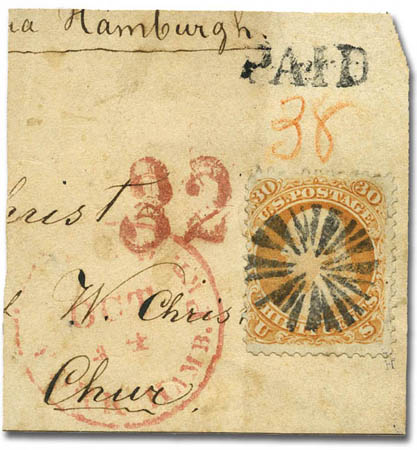 ia Hamburgh.
PAID
38
30 30
U.S. POSTAGE
32
hrist
OCT
W. Christ
U S
Chur.